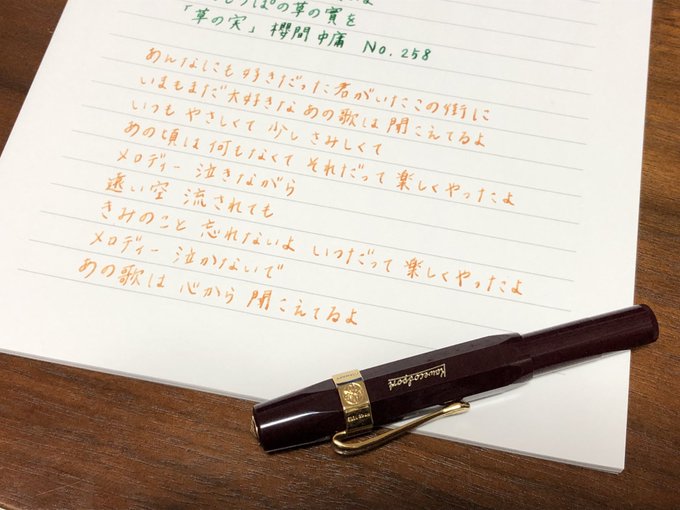 しっぽの草の實を
「草の実」 櫻間中庸 No.258
あんなにも 好きだった 君がいた この街に
いまもまだ 大好きな あの歌は 聞こえてるよ
いつも やさしくて 少し さみしくて
あの頃は 何もなくて それだって 楽しくやったよ
メロディー 泣きながら
遠い空 流されても
きみのこと 忘れないよ いつだって 楽しくやったよ
メロディー 泣かないで
あの歌は 心から 聞こえてるよ
Kaweco Sport